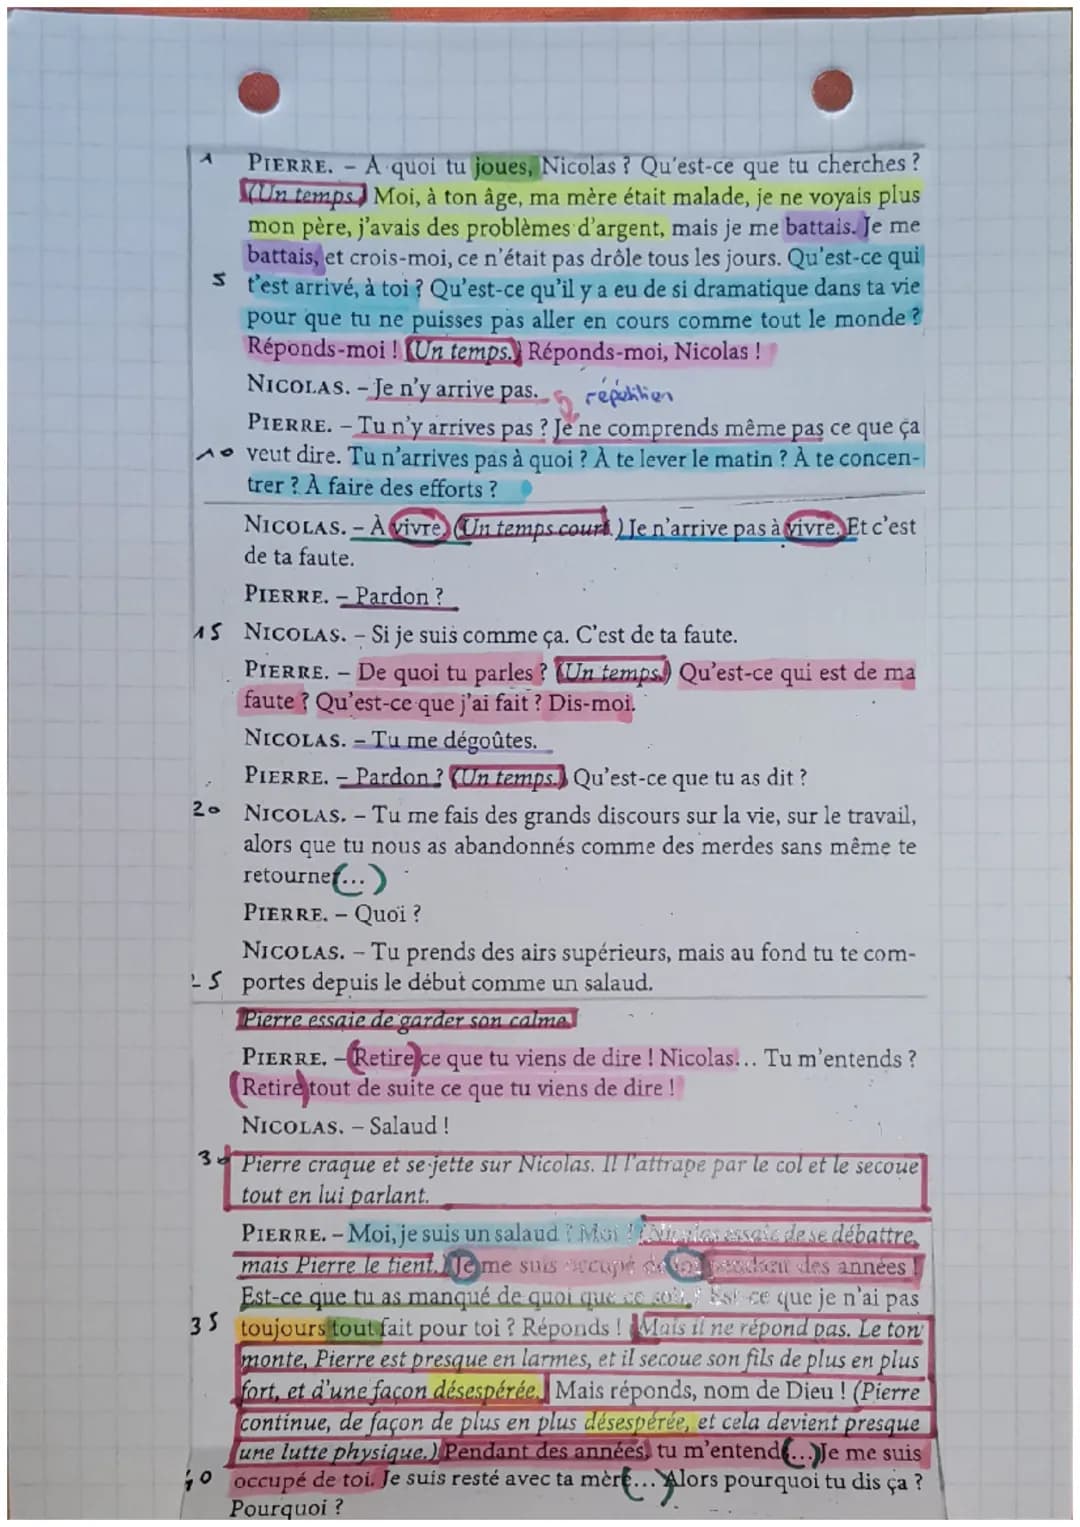 1 PIERRE. – À quoi tu joues, Nicolas ? Qu'est-ce que tu cherches ?
(Un temps.) Moi, à ton âge, ma mère était malade, je ne voyais plus
mon père, j'avais des problèmes d'argent, mais je me battais. Je me
battais, et crois-moi, ce n'était pas drôle tous les jours. Qu'est-ce qui
5 t'est arrivé, à toi ? Qu'est-ce qu'il y a eu de si dramatique dans ta vie
pour que tu ne puisses pas aller en cours comme tout le monde ?
Réponds-moi ! (Un temps.) Réponds-moi, Nicolas !
NICOLAS. – Je n'y arrive pas.
répétition
PIERRE. – Tu n'y arrives pas ? Je ne comprends même pas ce que ça
10 veut dire. Tu n'arrives pas à quoi ? À te lever le matin ? À te concen-
trer ? À faire des efforts ?
NICOLAS. – À vivre. (Un temps court.) Je n'arrive pas à vivre. Et c'est
de ta faute.
PIERRE. – Pardon ?
15 NICOLAS. – Si je suis comme ça. C'est de ta faute.
PIERRE. – De quoi tu parles ? (Un temps.) Qu'est-ce qui est de ma
faute ? Qu'est-ce que j'ai fait ? Dis-moi.
NICOLAS. – Tu me dégoûtes.
PIERRE. – Pardon ? (Un temps.) Qu'est-ce que tu as dit ?
20 NICOLAS. – Tu me fais des grands discours sur la vie, sur le travail,
alors que tu nous as abandonnés comme des merdes sans même te
retourner(...)
PIERRE. – Quoi ?
NICOLAS. – Tu prends des airs supérieurs, mais au fond tu te com-
25 portes depuis le début comme un salaud.
Pierre essaie de garder son calme.
PIERRE. – (Retire) ce que tu viens de dire ! Nicolas... Tu m'entends ?
(Retire) tout de suite ce que tu viens de dire !
NICOLAS. – Salaud !
30 Pierre craque et se jette sur Nicolas. Il l'attrape par le col et le secoue
tout en lui parlant.
PIERRE. – Moi, je suis un salaud ? Moi ? (Nicolas essaie de se débattre,
mais Pierre le tient.) Je me suis occupé de toi pendant des années !
Est-ce que tu as manqué de quoi que ce soit ? Est-ce que je n'ai pas
35 toujours tout fait pour toi ? Réponds ! (Mais il ne répond pas. Le ton
monte, Pierre est presque en larmes, et il secoue son fils de plus en plus
fort, et d'une façon désespérée.) Mais réponds, nom de Dieu ! (Pierre
continue, de façon de plus en plus désespérée, et cela devient presque
une lutte physique.) Pendant des années, tu m'entends(...) Je me suis
40 occupé de toi. Je suis resté avec ta mère(...) Alors pourquoi tu dis ça ?
Pourquoi ?